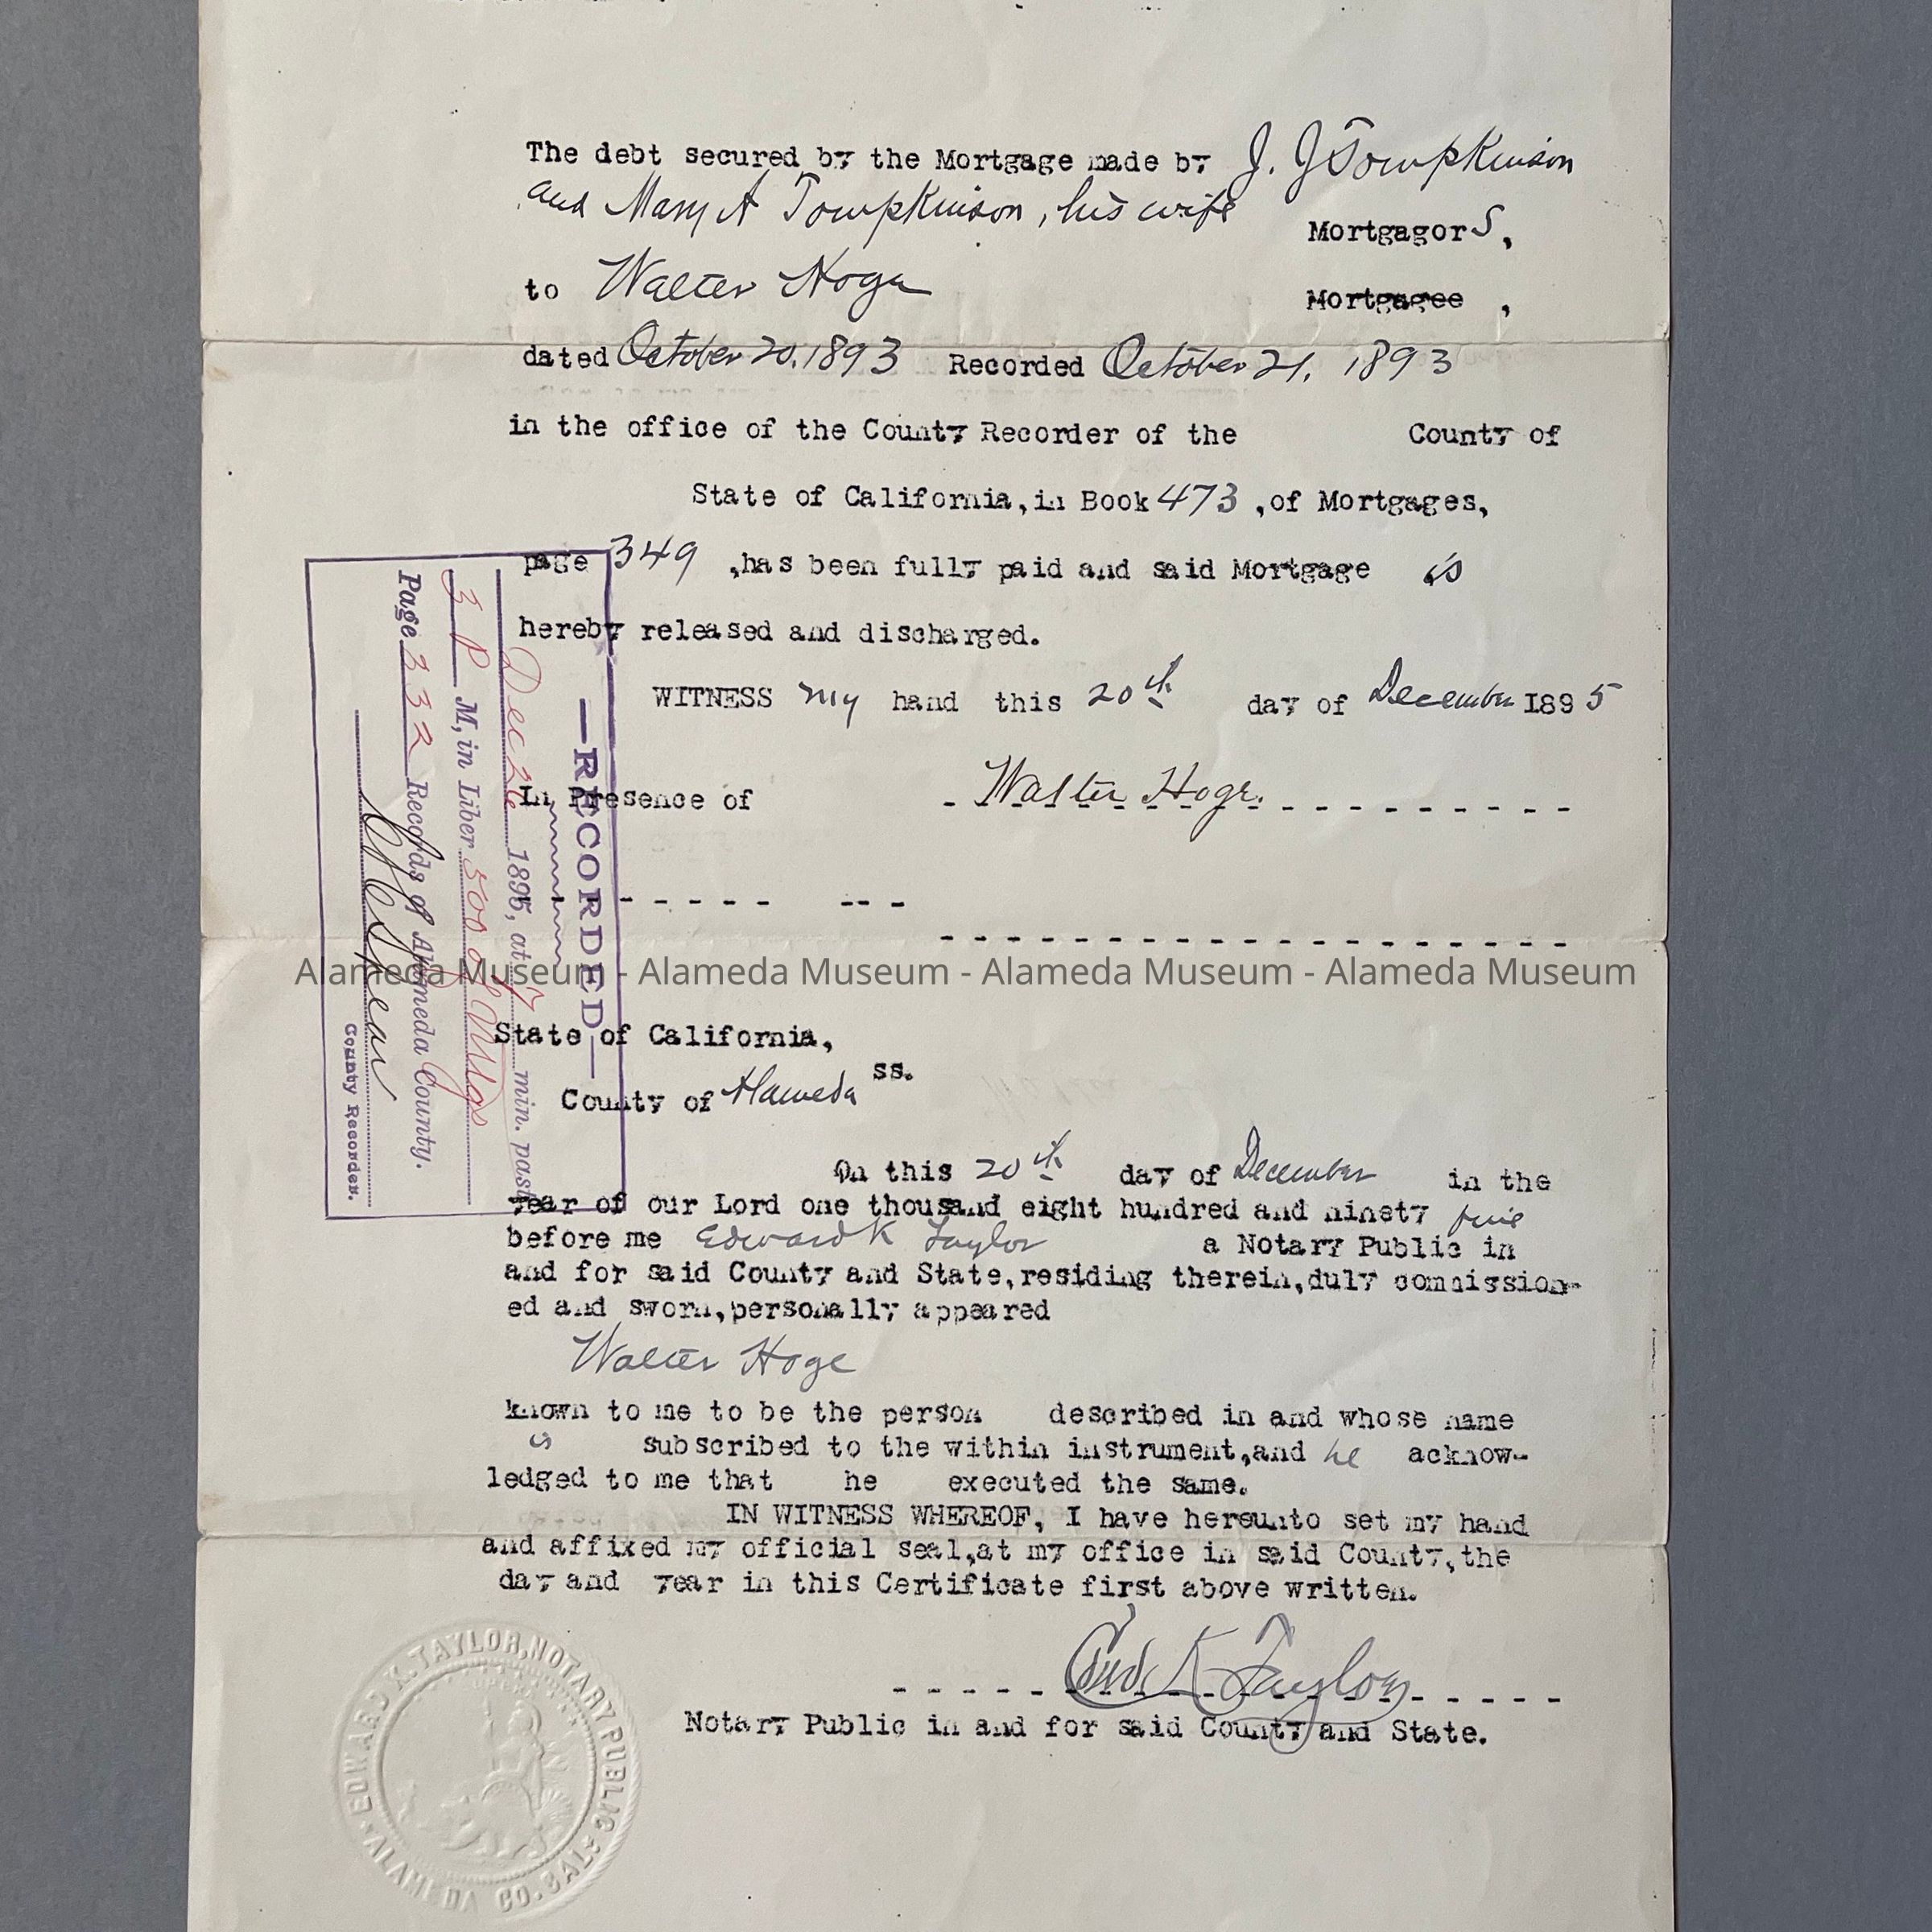 The debt secured by the Mortgage made by J. J Tompkinson
and Mary A Tompkinson, his wife
Mortgagors,
to Walter Hoge Mortgagee ,
dated October 20, 1893 Recorded October 21, 1893
in the office of the County Recorder of the County of
State of California, in Book 473 ,of Mortgages,
page 349 ,has been fully paid and said Mortgage is
hereby released and discharged.
WITNESS my hand this 20th day of December 1895
In Presence of Walter Hoge.
State of California,
ss.
County of Alameda
On this 20th day of December in the
year of our Lord one thousand eight hundred and ninety five
before me Edward K Taylor a Notary Public in
and for said County and State, residing therein, duly commission-
ed and sworn, personally appeared
Walter Hoge
known to me to be the person described in and whose name
is subscribed to the within instrument, and he acknow-
ledged to me that he executed the same.
IN WITNESS WHEREOF, I have hereunto set my hand
and affixed my official seal, at my office in said County, the
day and year in this Certificate first above written.
Edw. K. Taylor
Notary Public in and for said County and State.
—RECORDED—
Dec 1895, at 7 min. past
3 P M, in Liber 500 of Mtgs
Page 332 Records of Alameda County.
County Recorder.
EDWARD K. TAYLOR, NOTARY PUBLIC
ALAMEDA CO. CAL.
Alameda Museum - Alameda Museum - Alameda Museum - Alameda Museum